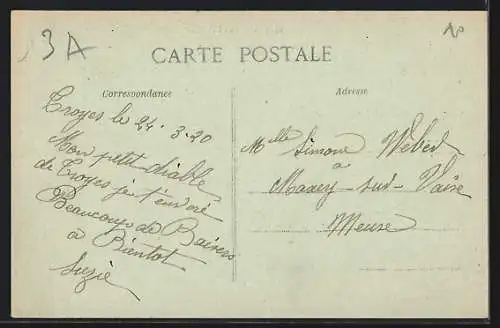 3A
CARTE POSTALE
Correspondance
Troyes le 24. 3. 20
Mon petit diable
de Troyes je t'envoi
Beaucoup de Baisers
à Bientot
Suzie
Adresse
Melle Simone Weber
à
Maxey-sur-Vaise
Meuse